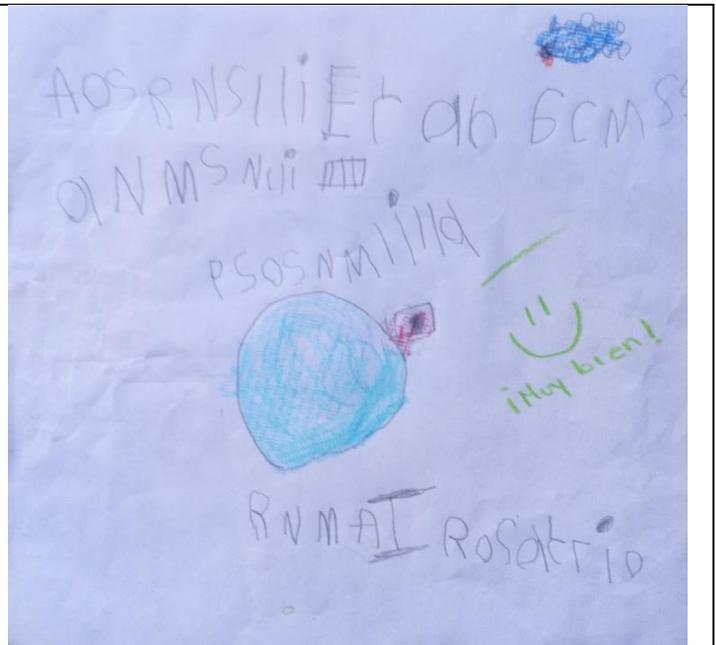 AOSRNSIIiEt ab GCMSS
aNMSNcii
PSOSNMiIIIa
¡Muy bien!
RNMAI Rosatrio